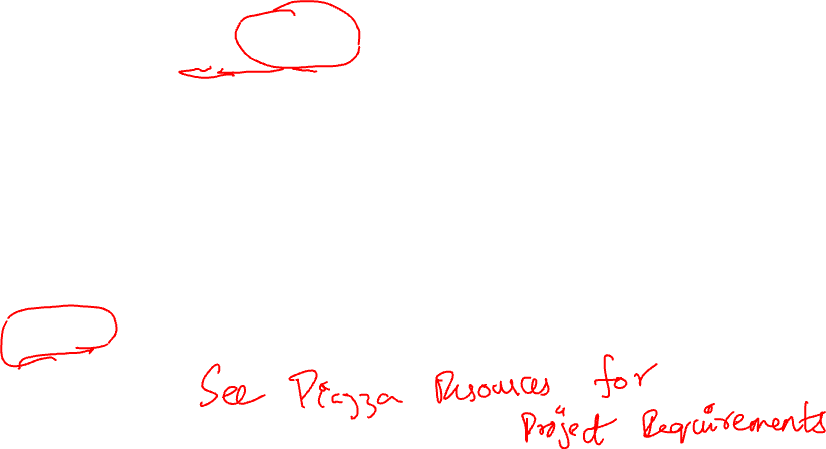 See Piazza Resources for
Project Requirements